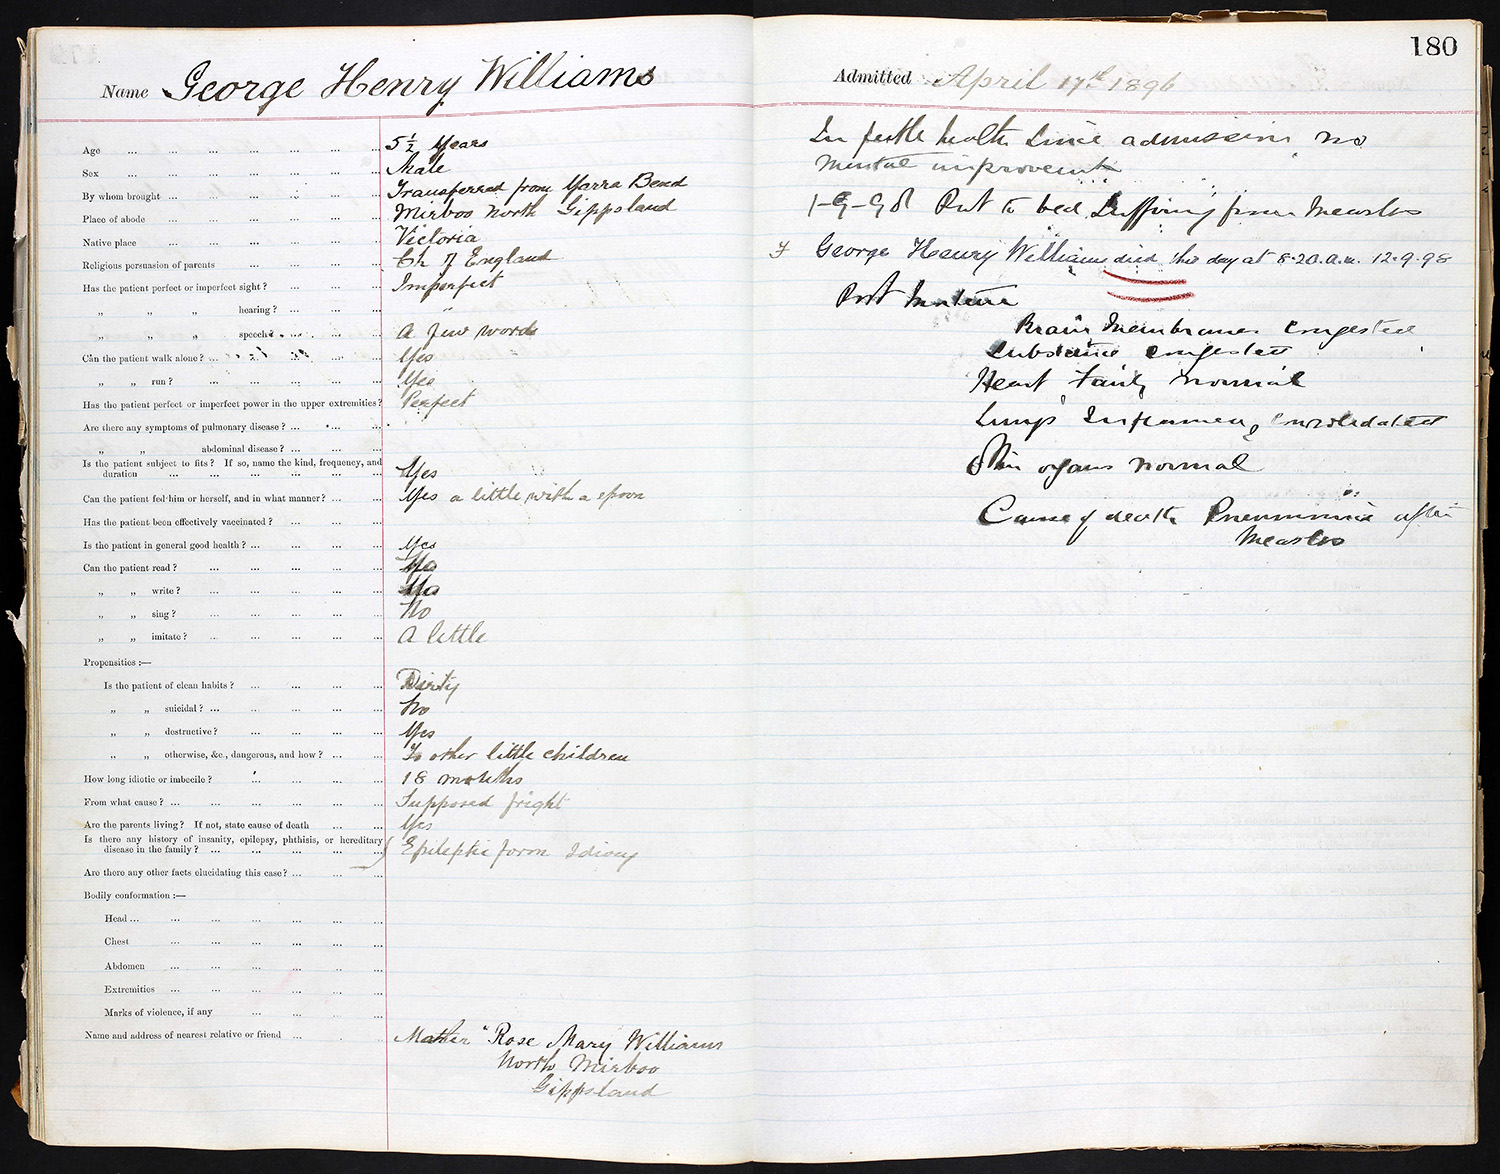 180
Name George Henry Williams
Admitted April 17th 1896
Age ... 5½ Years
Sex ... Male
By whom brought ... Transferred from Yarra Bend
Place of abode ... Mirboo North Gippsland
Native place ... Victoria
Religious persuasion of parents ... Ch of England
Has the patient perfect or imperfect sight? ... Imperfect
„ „ „ hearing? ... "
„ „ „ speech? ... A few words
Can the patient walk alone? ... Yes
„ „ run? ... Yes
Has the patient perfect or imperfect power in the upper extremities? Perfect
Are there any symptoms of pulmonary disease? ...
„ „ abdominal disease? ...
Is the patient subject to fits? If so, name the kind, frequency, and
duration ... Yes
Can the patient fed him or herself, and in what manner? ... Yes a little with a spoon
Has the patient been effectively vaccinated? ...
Is the patient in general good health? ... Yes
Can the patient read? ... No
„ „ write? ... No
„ „ sing? ... No
„ „ imitate? ... A little
Propensities :—
Is the patient of clean habits? ... Dirty
„ „ suicidal? ... No
„ „ destructive? ... Yes
„ „ otherwise, &c., dangerous, and how? ... To other little children
How long idiotic or imbecile? ... 18 months
From what cause? ... Supposed fright
Are the parents living? If not, state cause of death ... Yes
Is there any history of insanity, epilepsy, phthisis, or hereditary
disease in the family? ... Epileptic form Idiocy
Are there any other facts elucidating this case? ...
Bodily conformation :—
Head ...
Chest ...
Abdomen ...
Extremities ...
Marks of violence, if any ...
Name and address of nearest relative or friend ... Mother "Rose Mary Williams
North Mirboo
Gippsland
In feeble health since admission no
mental improvement
1-9-98 Put to bed suffering from Measles
George Henry Williams died this day at 8.20.a.m. 12.9.98
Post Mortem
Brain Membranes congested
Substance congested
Heart Fairly normal
Lungs Inflamed, consolidated
Other organs normal
Cause of death Pneumonia after
Measles